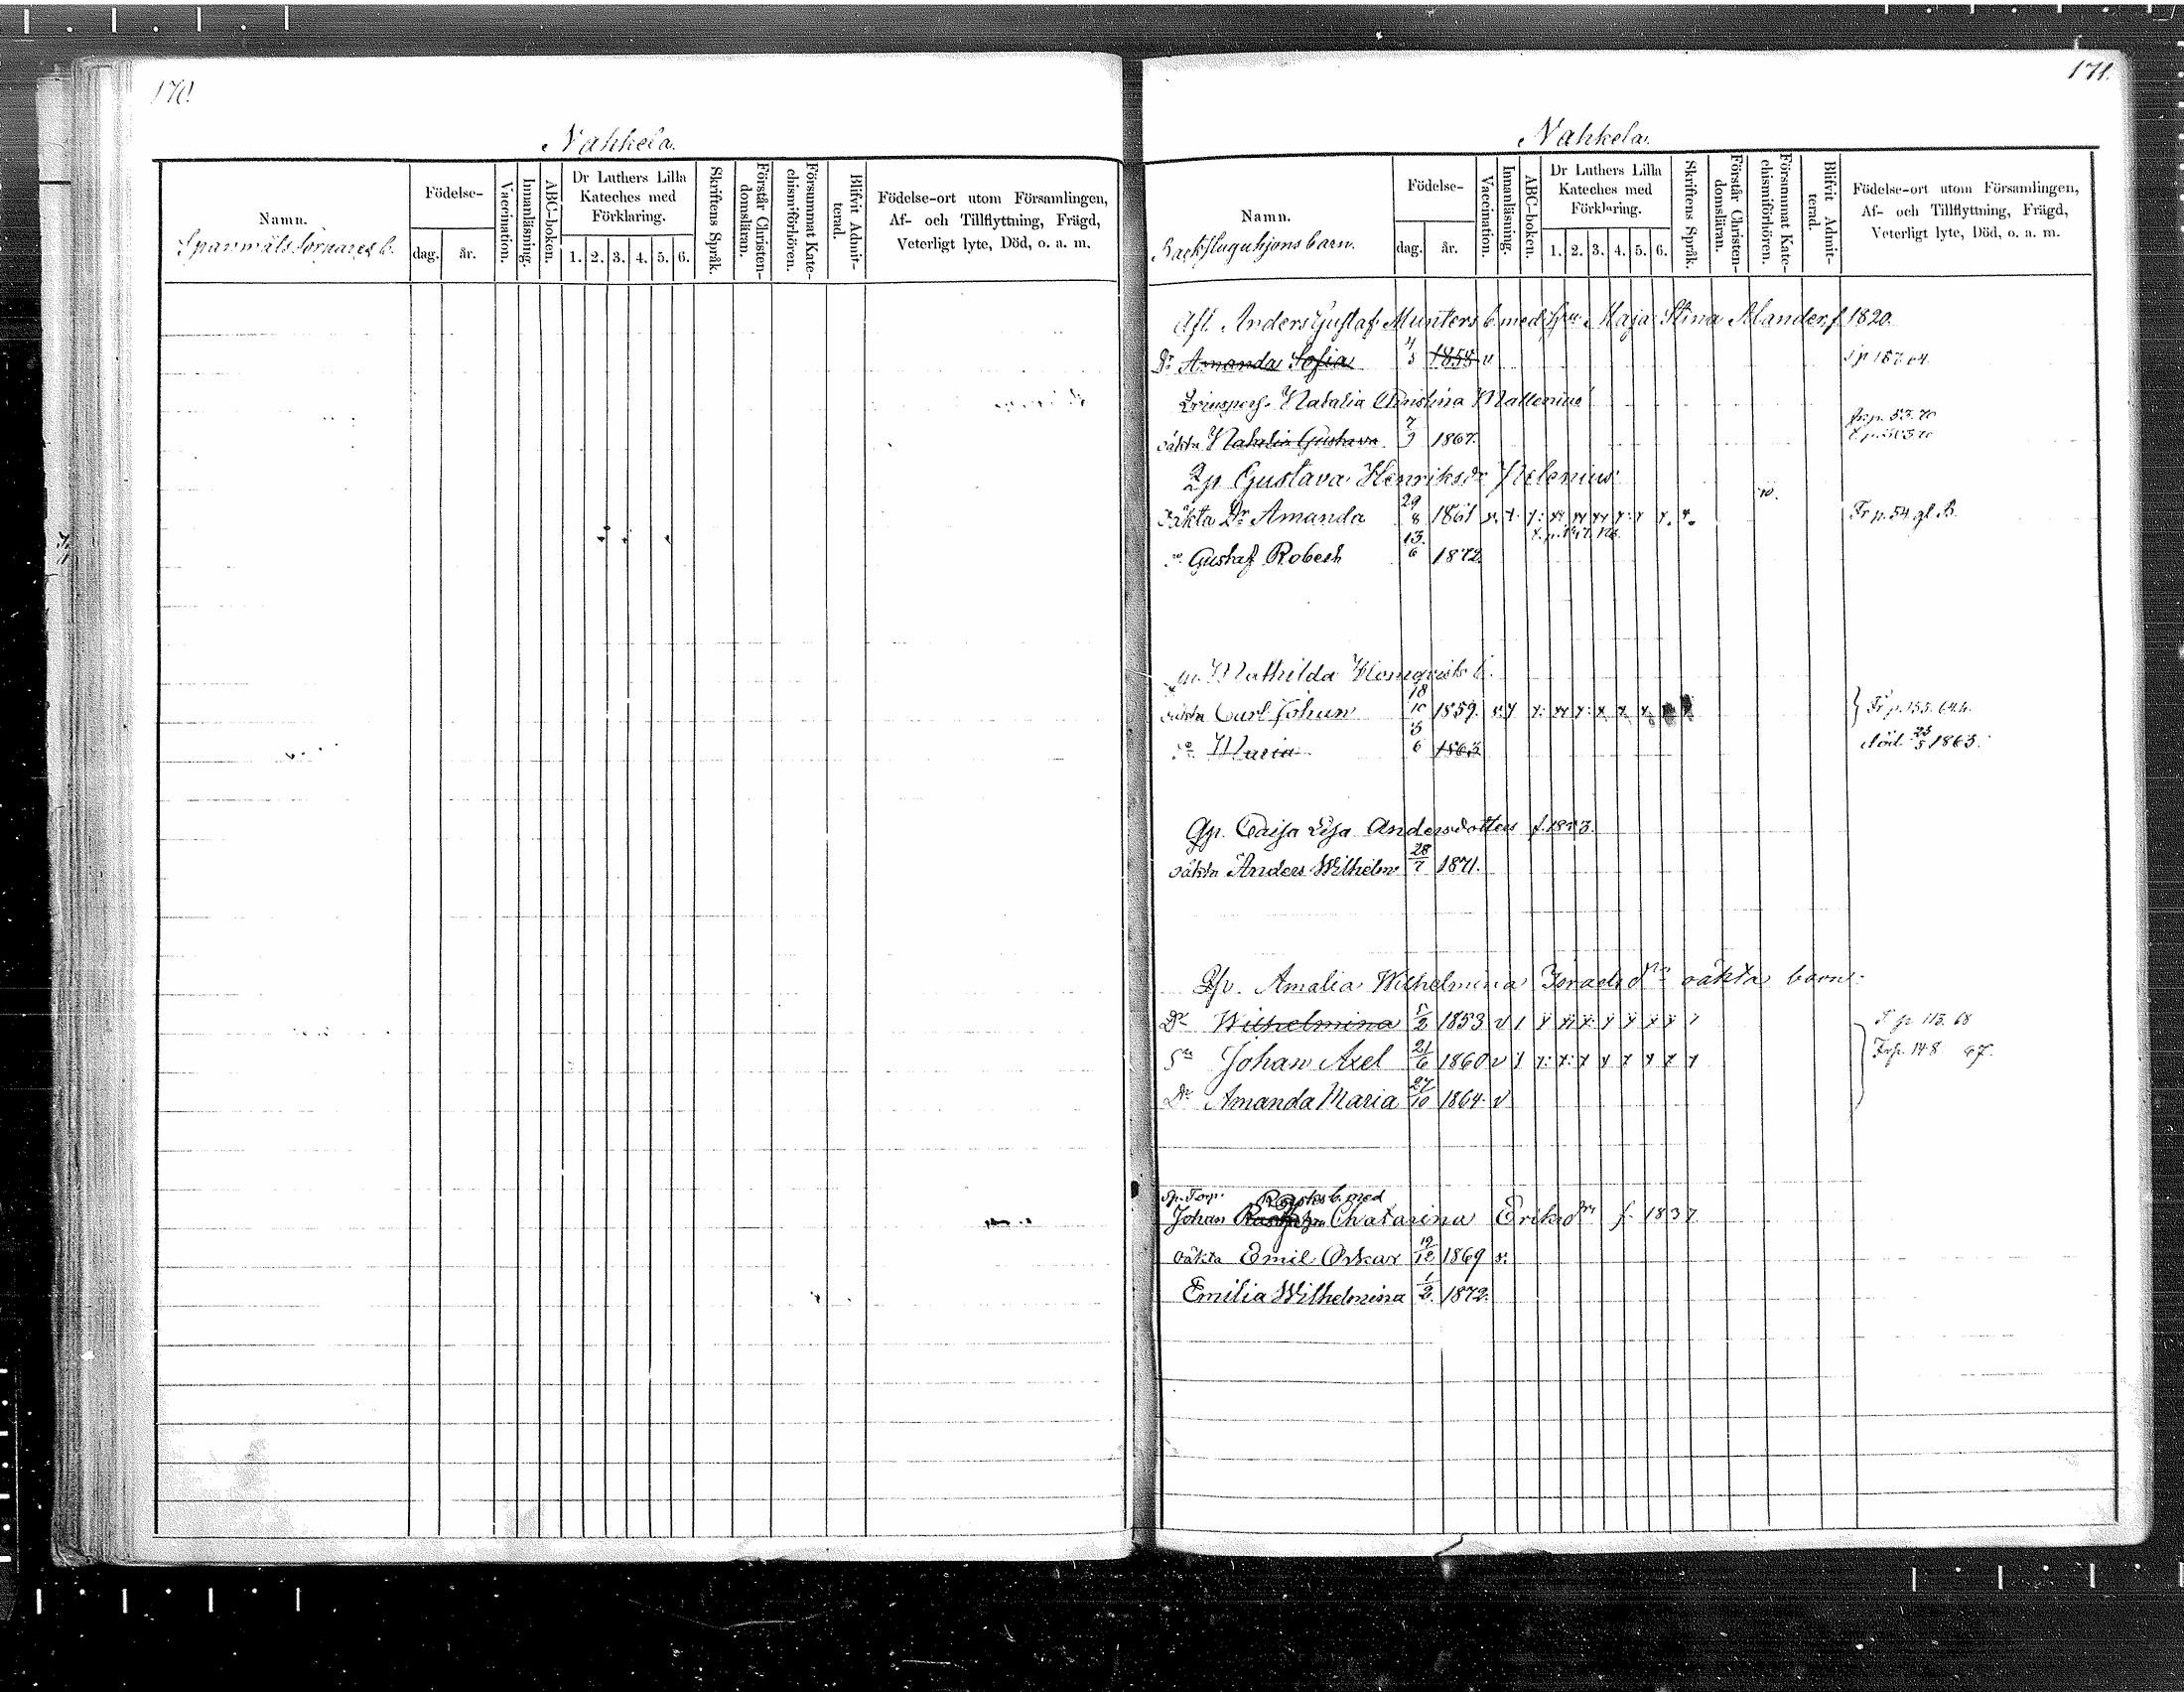 170.
Nahkela.
Namn.
Spanmåls torpares b.
Födelse-
dag. år.
Vaccination.
Innanläsning.
ABC-boken.
Dr Luthers Lilla Kateches med Förklaring.
1. 2. 3. 4. 5. 6.
Skriftens Språk.
Förstår Christendomsläran.
Försummat Katechismiförhören.
Blifvit Admitterad.
Födelse-ort utom Församlingen,
Af- och Tillflyttning, Frägd,
Veterligt lyte, Död, o. a. m.
171.
Nahkela.
Namn.
Backstuguhjons barn.
Födelse-
dag. år.
Vaccination.
Innanläsning.
ABC-boken.
Dr Luthers Lilla Kateches med Förklaring.
1. 2. 3. 4. 5. 6.
Skriftens Språk.
Förstår Christendomsläran.
Försummat Katechismiförhören.
Blifvit Admitterad.
Födelse-ort utom Församlingen,
Af- och Tillflyttning, Frägd,
Veterligt lyte, Död, o. a. m.
Afl. Anders Gustaf Munters b. med Hu Maja Stina Alander f 1820.
Dr Amanda Sofia 5 1858 v
Natalia Christina Mallenius
oäkta Natalia Gustava 7/9 1867.
Qp Gustava Henriksdr Helenius
oäkta Dr Amanda 29/8 1861 Fr p. 54 gl. B.
So Gustaf Robert 13/6 1872.
Mathilda Homqvists b.
oäkta Carl Johan 18/10 1859. Fr p. 155.
Do Maria 5/6 1863 död 25/8 1863.
Qp. Caisa Lisa Andersdotters
oäkta Anders Wilhelm 28/7 1871.
Qp. Amalia Wilhelmina Israelsdrs oäkta barn:
Dr Wilhelmina 5/2 1853 v T. p. 113. 68
Sn Johan Axel 21/6 1860 v Frp. 148. 67.
Dr Amanda Maria 27/10 1864 v
Sp. Torp. Rostes b. med
Johan Chatarina Eriksdrs f. 1837
oäkta Emil Oskar 19/12 1869 v.
Emilia Wilhelmina 1/2. 1872.